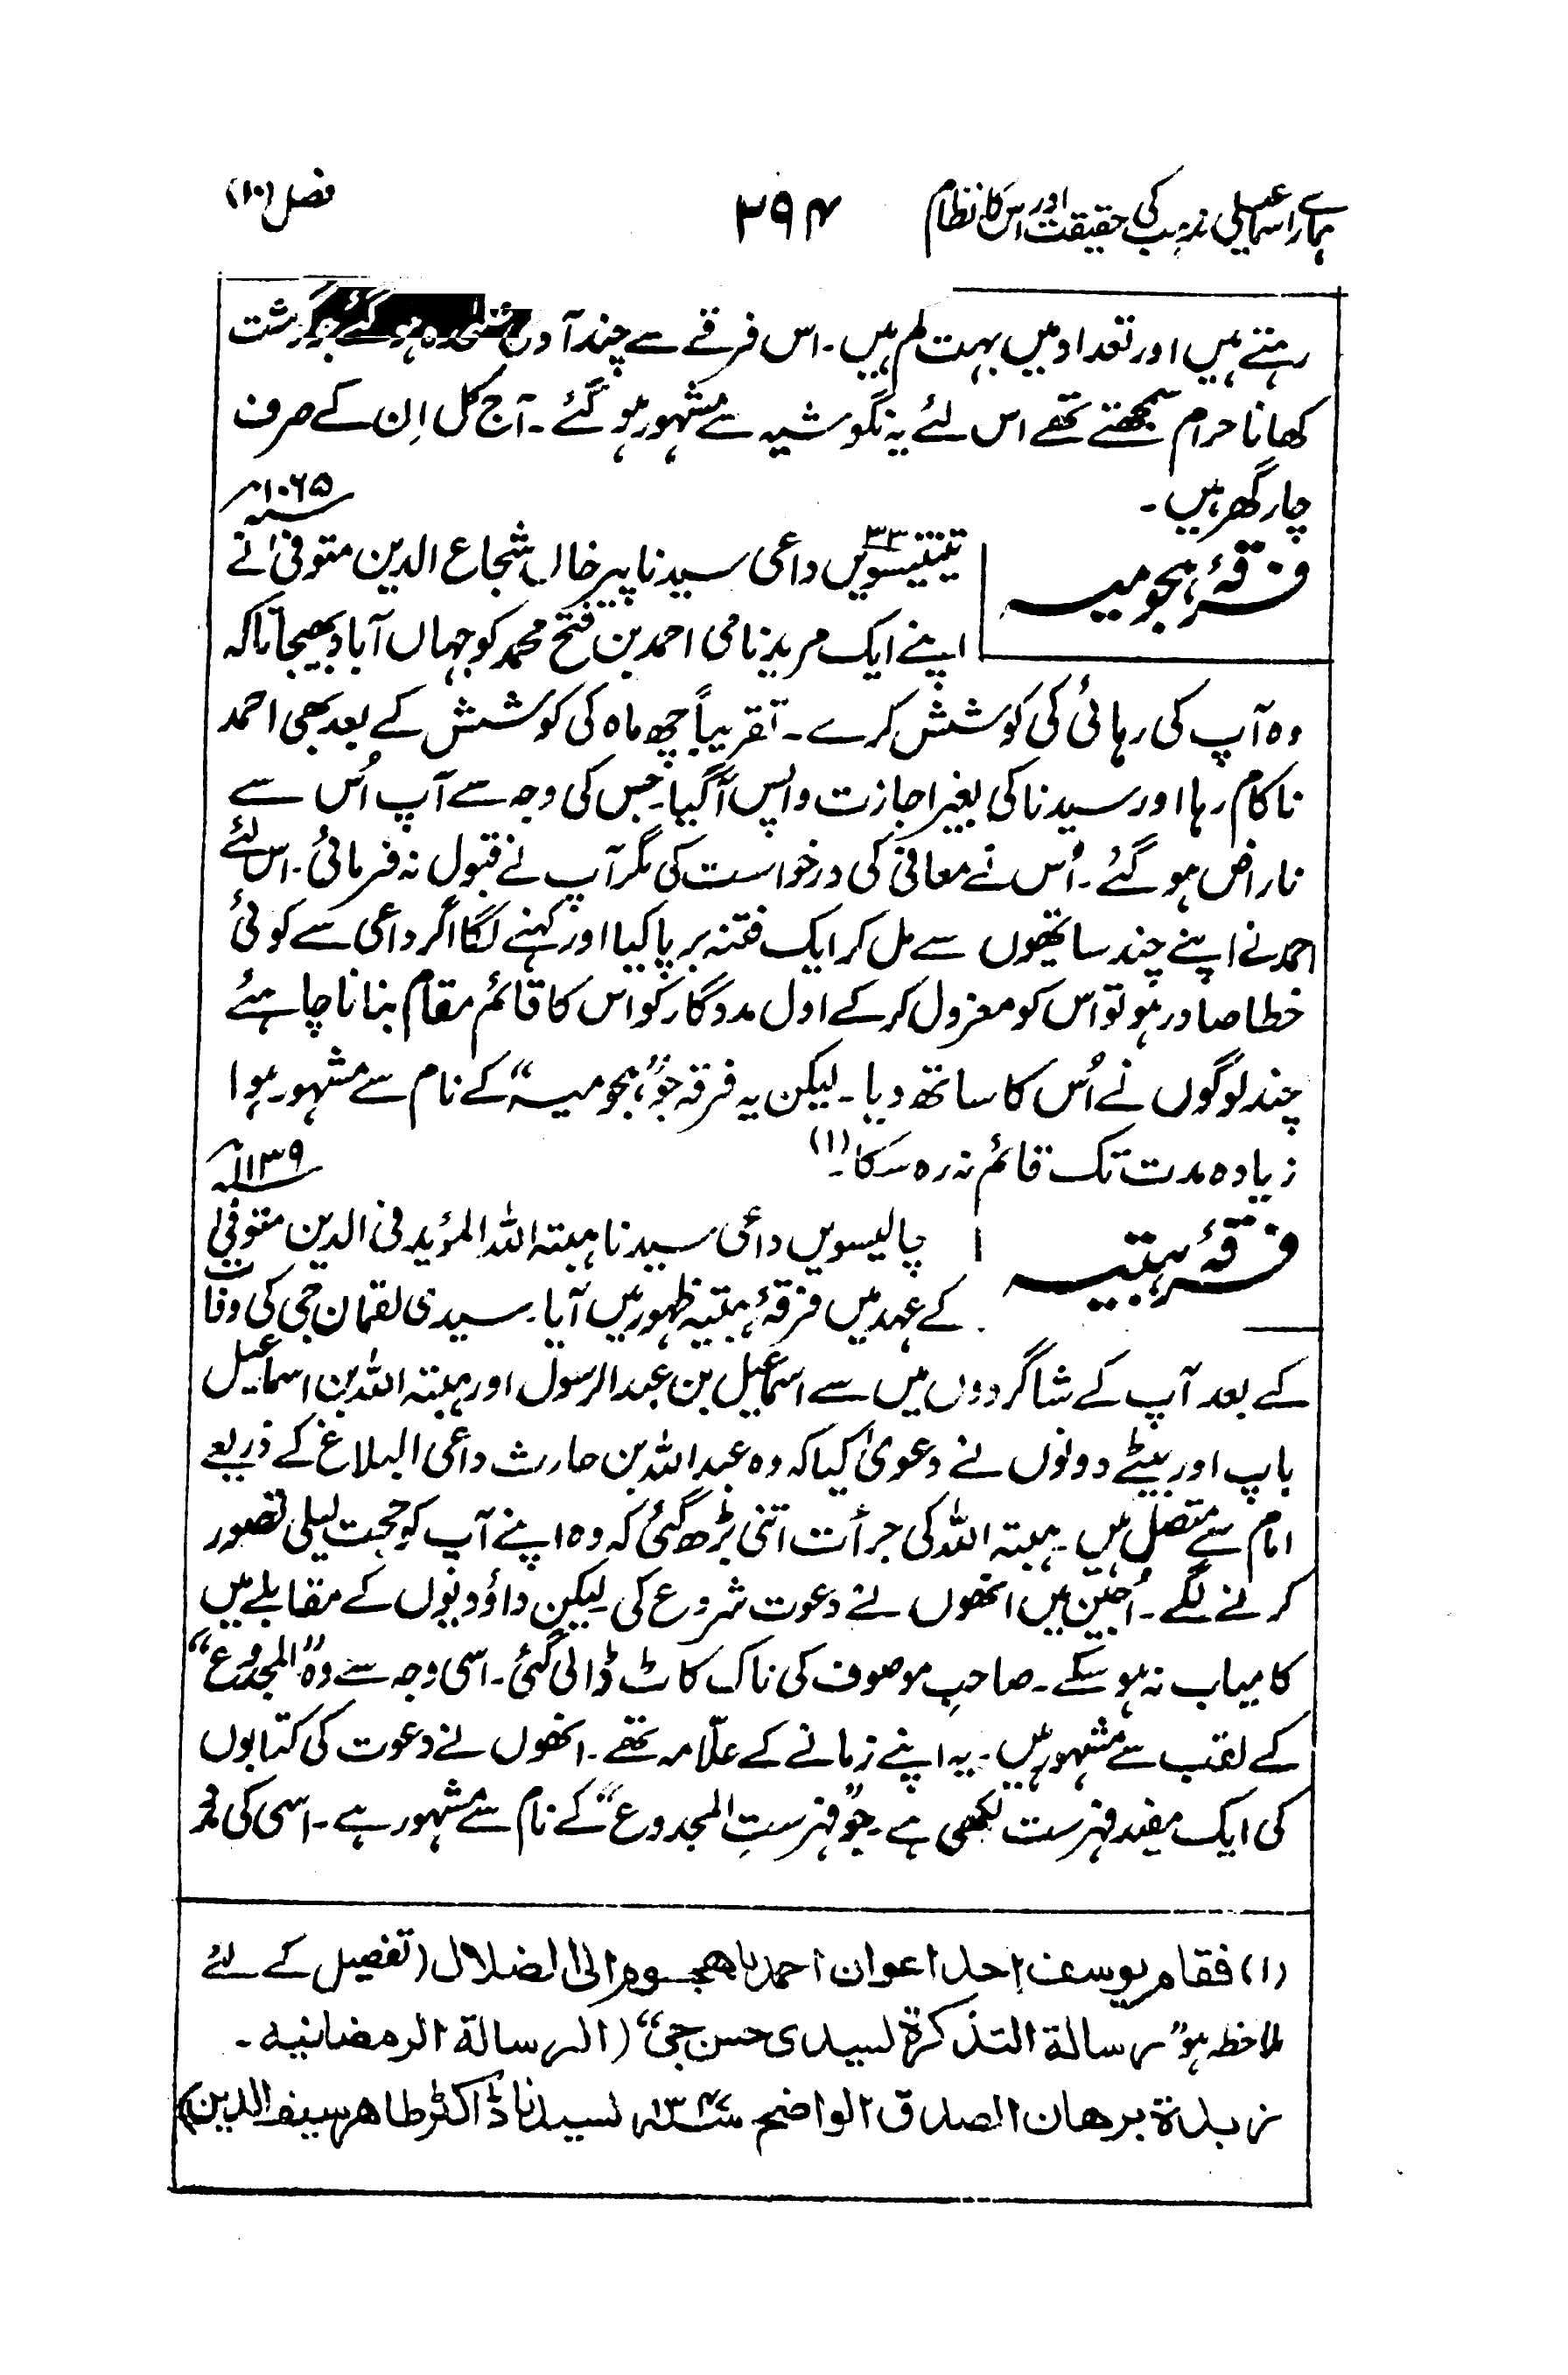 ہمارے اسماعیلی مذہب کی حقیقت اور اس کا نظام ۲۹۴ فصل (۱۰)
رہتے ہیں اور تعداد میں بہت کم ہیں۔ اس فرقے سے چند آدمی علیحدہ ہو گئے جو گوشت
کھانا حرام سمجھتے تھے اس لئے یہ نگوشیہ سے مشہور ہو گئے۔ آج کل اِن کے صرف
چار گھر ہیں۔
فرقۂ ہجومیہ
تینتیسویں ۳۳ داعی سیدنا پیر خاں شجاع الدین متوفیٰ ۱۰۶۵ھ نے
اپنے ایک مرید نامی احمد بن فتح محمد کو جہاں آباد بھیجا تاکہ
وہ آپ کی رہائی کی کوشش کرے۔ تقریباً چھ ماہ کی کوشش کے بعد بھی احمد
ناکام رہا اور سیدنا کی بغیر اجازت واپس آگیا۔ جس کی وجہ سے آپ اُس سے
ناراض ہو گئے۔ اُس نے معافی کی درخواست کی مگر آپ نے قبول نہ فرمائی۔ اس لئے
احمد نے اپنے چند ساتھوں سے مل کر ایک فتنہ برپا کیا اور کہنے لگا اگر داعی سے کوئی
خطا صادر ہو تو اس کو معزول کر کے اول مددگار کو اس کا قائم مقام بنانا چاہئے
چند لوگوں نے اُس کا ساتھ دیا۔ لیکن یہ فرقہ جو "ہجومیہ" کے نام سے مشہور ہوا
زیادہ مدت تک قائم نہ رہ سکا۔(۱)
فرقۂ ہبتیہ
چالیسویں داعی سیدنا ہبتہ اللہ المؤید فی الدین متوفی ۱۱۳۹ھ
کے عہد میں فرقۂ ہبتیہ ظہور میں آیا۔ سیدی لقمان جی کی وفات
کے بعد آپ کے شاگردوں میں سے اسماعیل بن عبد الرسول اور ہبتہ اللہ بن اسماعیل
باپ اور بیٹے دونوں نے دعویٰ کیا کہ وہ عبد اللہ بن حارث داعی البلاغ کے ذریعے
امام سے متصل ہیں۔ ہبتہ اللہ کی جرأت اتنی بڑھ گئی کہ وہ اپنے آپ کو حجت لیلی تصور
کرنے لگے۔ اُجین میں انھوں نے دعوت شروع کی لیکن داؤدیوں کے مقابلے میں
کامیاب نہ ہو سکے۔ صاحبِ موصوف کی ناک کاٹ ڈالی گئی۔ اسی وجہ سے وہ "المجدوع"
کے لقب سے مشہور ہیں۔ یہ اپنے زمانے کے علّامہ تھے۔ انھوں نے دعوت کی کتابوں
کی ایک مفید فہرست لکھی ہے۔ جو "فہرستِ المجدوع" کے نام سے مشہور ہے۔ اسی کی
(۱) فقام یوسف احد اعوان احمد باھجوم الی الضلال (تفصیل کے لئے
ملاحظہ ہو "رسالة التذکرة لسیدی حسن جی" (الرسالة الرمضانیه۔
زبدة برھان الصدق الواضح لسیدنا ڈاکٹر طاھر سیف الدین)